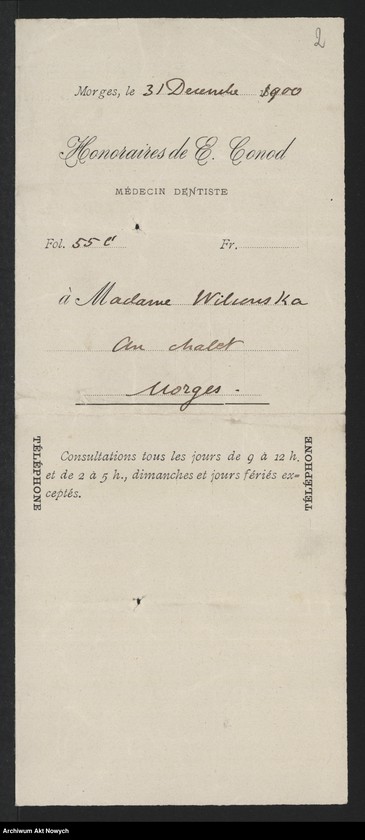 2
Morges, le 31 Decembre 1900
Honoraires de E. Conod
MÉDECIN DENTISTE
Fol. 55 Fr.
à Madame Wilkonska
au chalet
Morges.
TÉLÉPHONE
Consultations tous les jours de 9 à 12 h.
et de 2 à 5 h., dimanches et jours fériés ex=
ceptés.
TÉLÉPHONE
Archiwum Akt Nowych